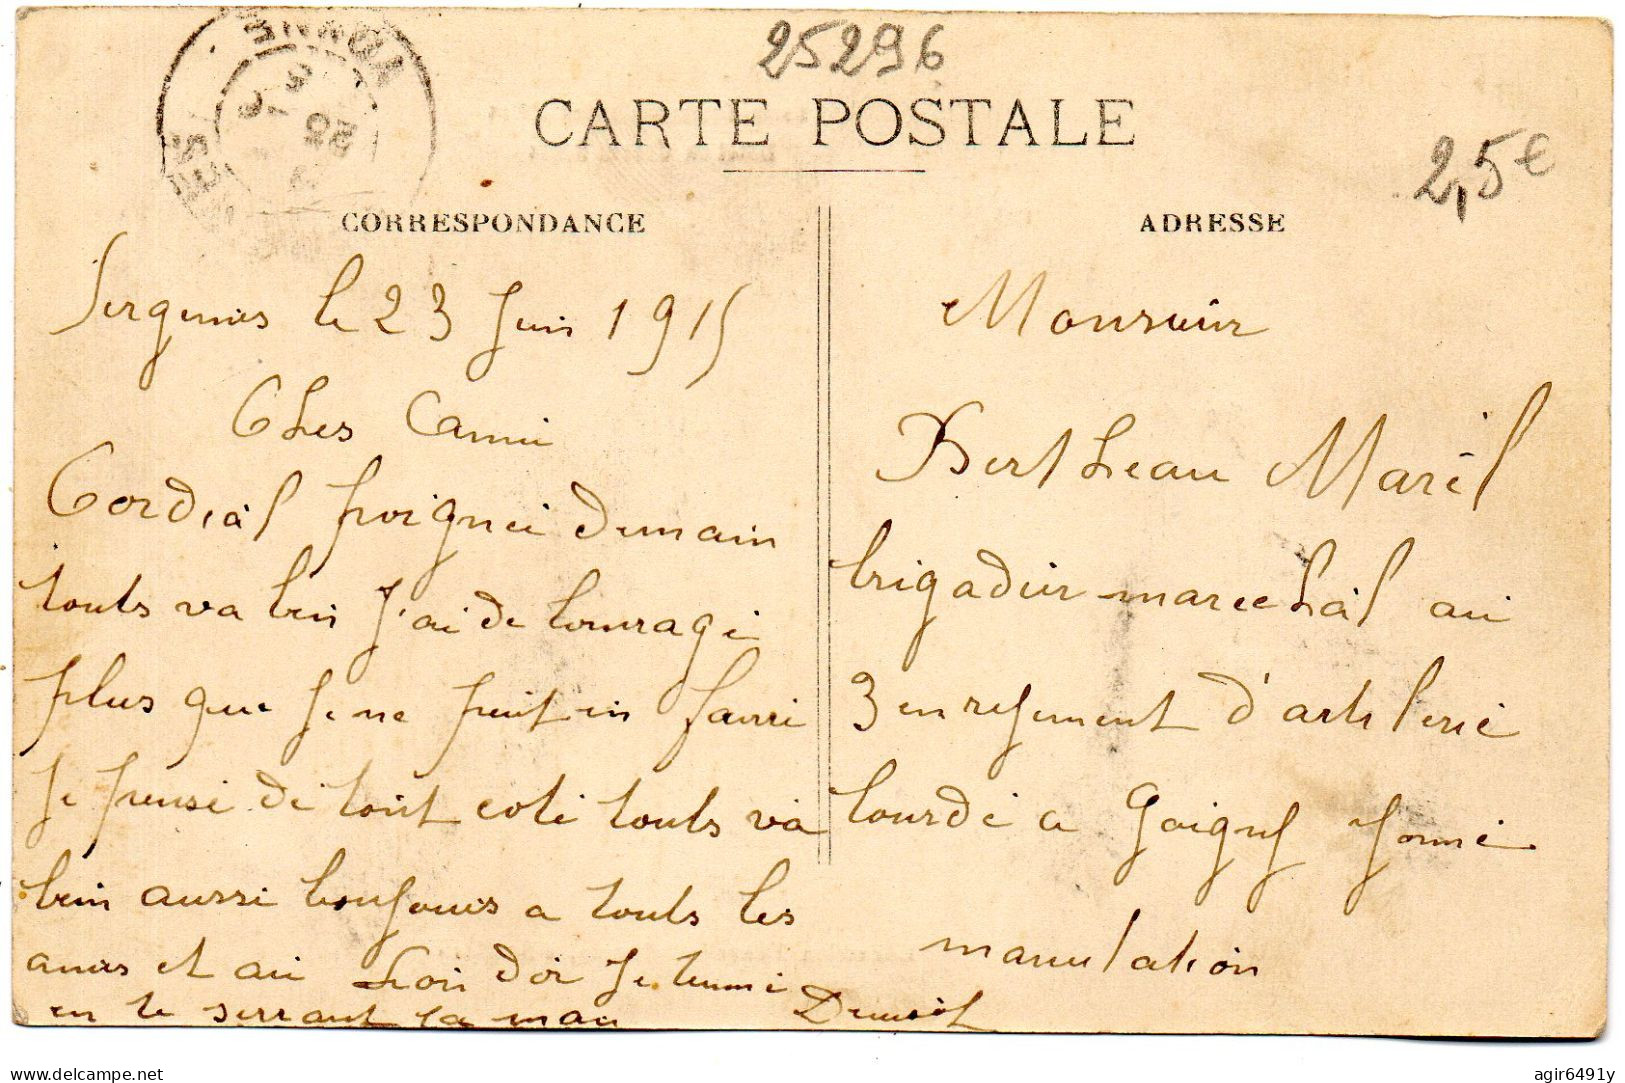 25296
CARTE POSTALE
2,5€
YONNE
CORRESPONDANCE
ADRESSE
Sergines le 23 Juin 1915
Cher Cami
Cordial poignei demain
touts va bien J'ai de courage
plus que Je ne peut en faire
Je pense de tout coté touts va
bien aussi bonjours a touts les
amis et au Lion d'or Je termine
en te serrant la main
Monsieur
Bertheau Marèl
brigadier marechal au
3 en rejement d'artilerie
lourde a Joigny Yonne
manutation
delcampe.net
agir6491y